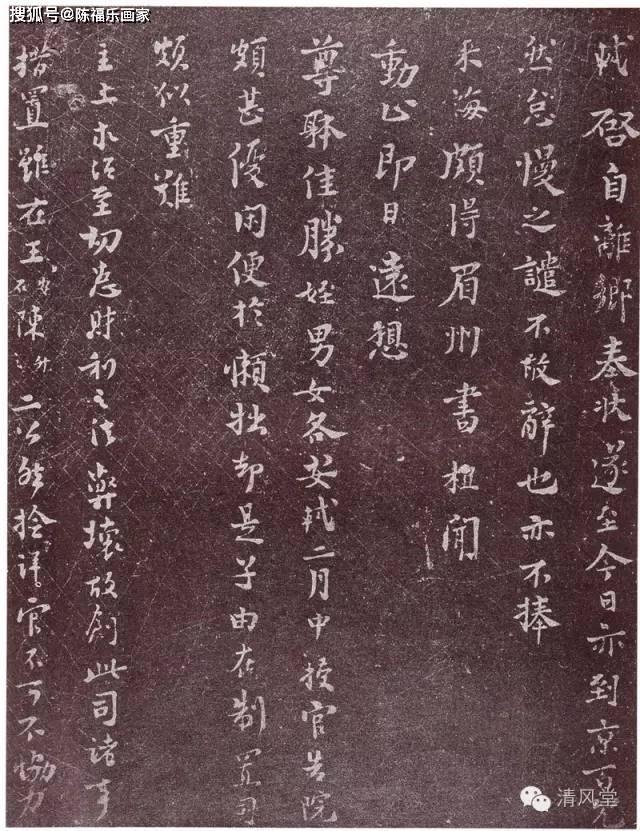 搜狐号@陈福乐画家
軾啓自離鄉奉狀遂至今日亦到京百冗
然怠慢之譴不敢辭也亦不捧
來誨頗得眉州書粗聞
動止即日遠想
尊躰佳勝姪男女各安軾二月中授官告院
頗甚優閑便於懶拙却是子由在制置司
頗似重難
主上求治至切患財利之法弊壞故創此司諸事
措置雖在王陳升二公然檢詳官不可不協力
清风堂